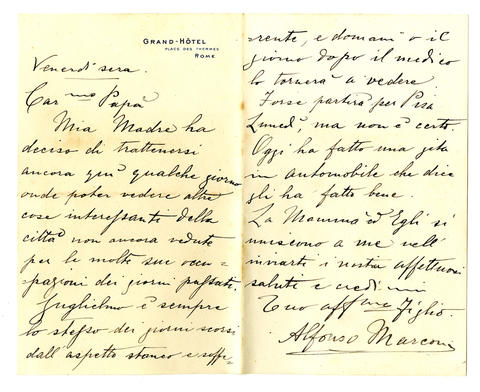 GRAND-HÔTEL
PLACE DES THERMES
ROME
Venerdì sera.
Car.mo Papà
Mia Madre ha
deciso di trattenersi
ancora quì qualche giorno
onde poter vedere altre
cose interessante della
città non ancora vedute
per le molte sue occu-
pazioni dei giorni passati.
Guglielmo è sempre
lo stesso dei giorni scorsi
dall'aspetto stanco e soffe-
rente, e domani o il
giorno dopo il medico
lo tornerà a vedere
Forse partirà per Pisa
Lunedì, ma non è certo.
Oggi ha fatto una gita
in automobile che dice
gli ha fatto bene.
La Mamma ed Egli si
uniscono a me nell'
inviarti i nostri affettuosi
saluti e credimi
Tuo aff.mo Figlio.
Alfonso Marconi